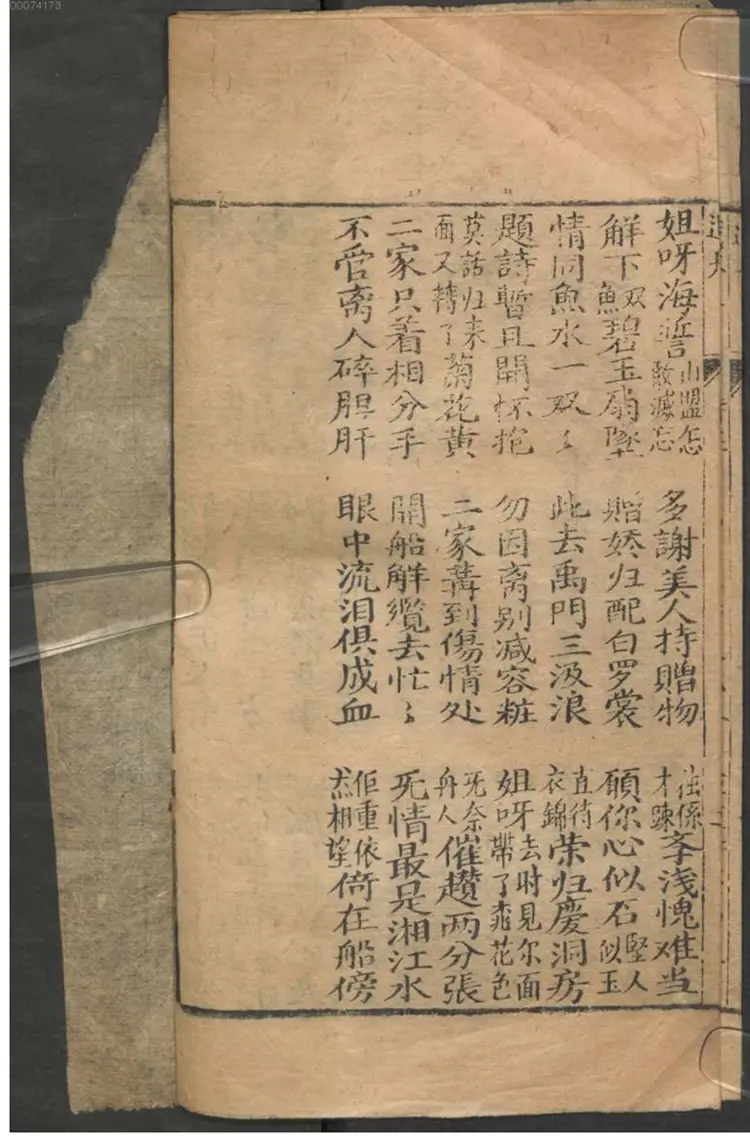 00074173
姐呀海誓山盟怎敢滅忘 多謝美人持贈物 往係才踈孪浅愧难当
解下双魚碧玉扇墜 贈娇归配白罗裳 願你心似石堅人似玉
情同魚水一双〻 此去禹門三汲浪 直待衣錦荣归慶洞房
題詩暫且開怀抱 勿因离别减容粧 姐呀去时見尔面帶了桃花色
莫話归来面又轉了菊花黄 二家講到傷情处 无奈舟人催趲两分張
二家只着相分手 開船解纜去忙〻 无情最是湘江水
不管离人碎胆肝 眼中流泪俱成血 佢重依然相望倚在船傍